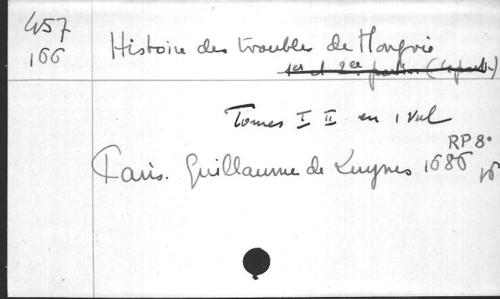 457
166
Histoire des troubles de Hongrie
1er et 2ee parties
Tomes I II en 1 vol
RP 8°
Paris. Guillaume de Luynes 1686